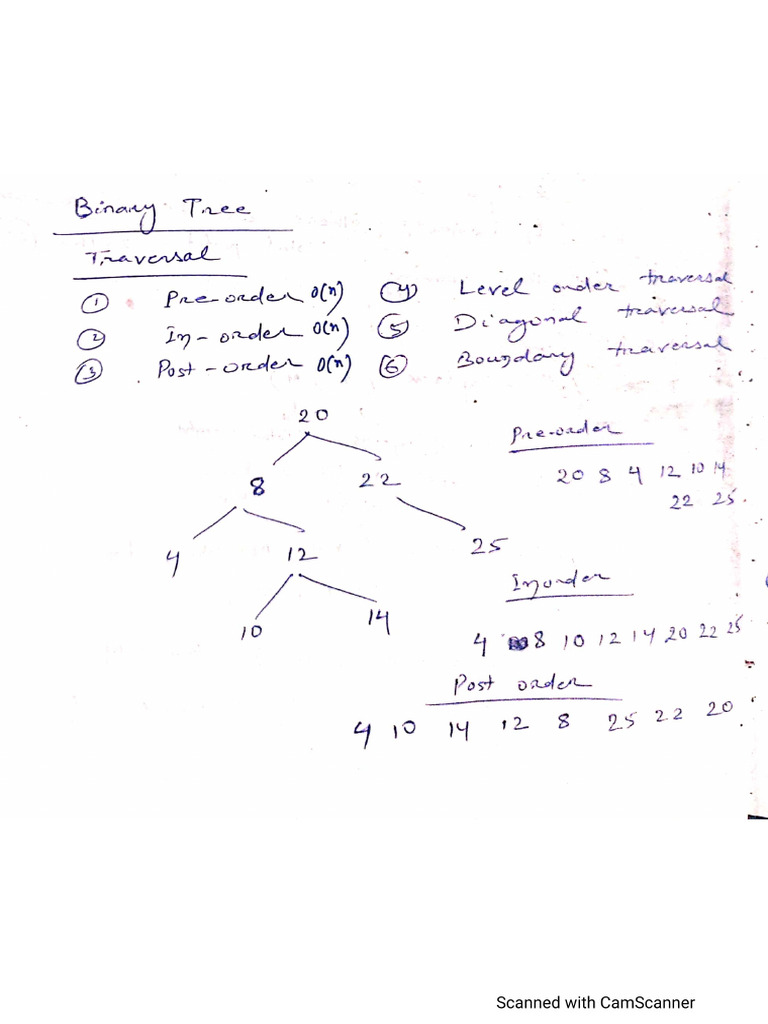 Binary Tree
Traversal
① Pre-order O(n) ④ Level order traversal
② In-order O(n) ⑤ Diagonal traversal
③ Post-order O(n) ⑥ Boundary traversal
20
8 22
4 12 25
10 14
Pre-order
20 8 4 12 10 14
22 25.
Inorder
4 8 10 12 14 20 22 25
Post order
4 10 14 12 8 25 22 20
Scanned with CamScanner